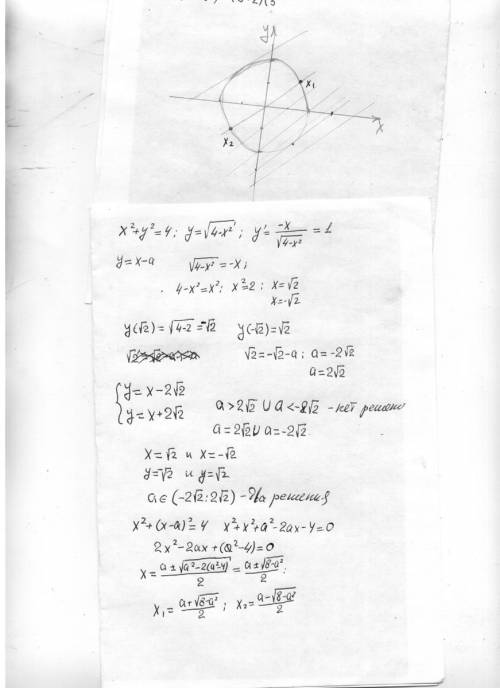 y
x₁
x₂
x
x²+y²=4; y=√(4-x²); y'=-x/√(4-x²)=1
y=x-a √(4-x²)=-x;
4-x²=x²; x²=2; x=√2
x=-√2
y(√2)=√(4-2)=-√2 y(-√2)=√2
√2=-√2-a; a=-2√2
a=2√2
{y=x-2√2
{y=x+2√2
a>2√2 ∪ a<-2√2 - нет решени
a=2√2 ∪ a=-2√2
x=√2 и x=-√2
y=-√2 и y=√2
a∈(-2√2;2√2) - два решения
x²+(x-a)²=4 x²+x²+a²-2ax-4=0
2x²-2ax+(a²-4)=0
x=(a±√(a²-2(a²-4)))/2=(a±√(8-a²))/2;
x₁=(a+√(8-a²))/2; x₂=(a-√(8-a²))/2